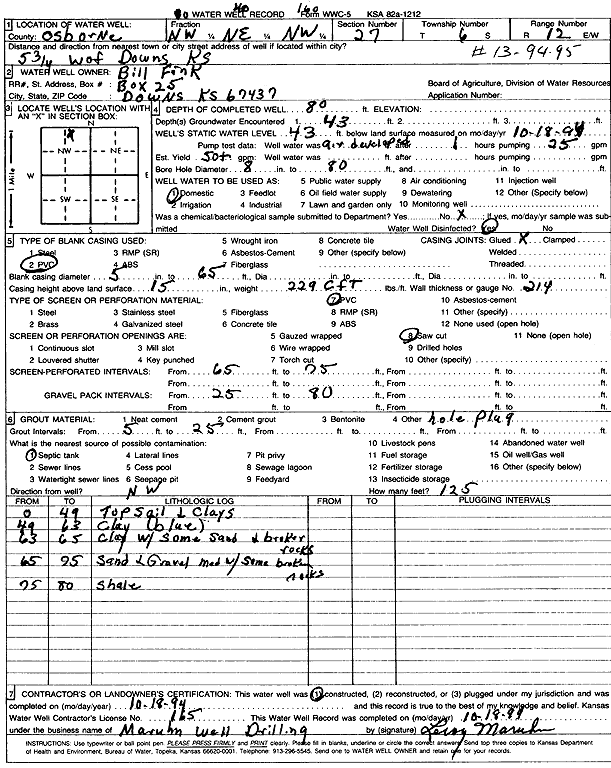 WATER WELL RECORD Form WWC-5 KSA 82a-1212
1 LOCATION OF WATER WELL: Fraction Section Number Township Number Range Number
County: Osborne NW ¼ NE ¼ NW ¼ 27 T 6 S R 12 E/W
Distance and direction from nearest town or city street address of well if located within city?
5 3/4 W of Downs KS #13-94-95
2 WATER WELL OWNER: Bill Fink
RR#, St. Address, Box # : Box 25 Board of Agriculture, Division of Water Resources
City, State, ZIP Code : Downs KS 67437 Application Number:
3 LOCATE WELL'S LOCATION WITH AN "X" IN SECTION BOX:
N
X
NW NE
W E
SW SE
S
1 Mile
4 DEPTH OF COMPLETED WELL 80 ft. ELEVATION:
Depth(s) Groundwater Encountered 1 43 ft. 2. ft. 3. ft.
WELL'S STATIC WATER LEVEL 43 ft. below land surface measured on mo/day/yr 10-18-94
Pump test data: Well water was air developed ft. after 1 hours pumping 25 gpm
Est. Yield 50+ gpm: Well water was ft. after hours pumping gpm
Bore Hole Diameter 8 in. to 80 ft., and in. to ft.
WELL WATER TO BE USED AS: 5 Public water supply 8 Air conditioning 11 Injection well
1 Domestic 3 Feedlot 6 Oil field water supply 9 Dewatering 12 Other (Specify below)
2 Irrigation 4 Industrial 7 Lawn and garden only 10 Monitoring well
Was a chemical/bacteriological sample submitted to Department? Yes No X ; If yes, mo/day/yr sample was submitted
Water Well Disinfected? Yes No
5 TYPE OF BLANK CASING USED: 5 Wrought iron 8 Concrete tile CASING JOINTS: Glued X Clamped
1 Steel 3 RMP (SR) 6 Asbestos-Cement 9 Other (specify below) Welded
2 PVC 4 ABS 7 Fiberglass Threaded.
Blank casing diameter 5 in. to 65 ft., Dia in. to ft., Dia in. to ft.
Casing height above land surface 15 in., weight 229 CFT lbs./ft. Wall thickness or gauge No. .214
TYPE OF SCREEN OR PERFORATION MATERIAL: 7 PVC 10 Asbestos-cement
1 Steel 3 Stainless steel 5 Fiberglass 8 RMP (SR) 11 Other (specify)
2 Brass 4 Galvanized steel 6 Concrete tile 9 ABS 12 None used (open hole)
SCREEN OR PERFORATION OPENINGS ARE: 5 Gauzed wrapped 8 Saw cut 11 None (open hole)
1 Continuous slot 3 Mill slot 6 Wire wrapped 9 Drilled holes
2 Louvered shutter 4 Key punched 7 Torch cut 10 Other (specify)
SCREEN-PERFORATED INTERVALS: From 65 ft. to 75 ft., From ft. to ft.
From ft. to ft., From ft. to ft.
GRAVEL PACK INTERVALS: From 25 ft. to 80 ft., From ft. to ft.
From ft. to ft., From ft. to ft.
6 GROUT MATERIAL: 1 Neat cement 2 Cement grout 3 Bentonite 4 Other hole plug
Grout Intervals: From 5 ft. to 25 ft., From ft. to ft., From ft. to ft.
What is the nearest source of possible contamination: 10 Livestock pens 14 Abandoned water well
1 Septic tank 4 Lateral lines 7 Pit privy 11 Fuel storage 15 Oil well/Gas well
2 Sewer lines 5 Cess pool 8 Sewage lagoon 12 Fertilizer storage 16 Other (specify below)
3 Watertight sewer lines 6 Seepage pit 9 Feedyard 13 Insecticide storage
Direction from well? NW How many feet? 125
FROM TO LITHOLOGIC LOG FROM TO PLUGGING INTERVALS
0 49 Top Soil & Clays
49 63 Clay (blue)
63 65 Clay w/ Some Sand & broken rocks
65 75 Sand & Gravel med w/ Some broken rocks
75 80 Shale
7 CONTRACTOR'S OR LANDOWNER'S CERTIFICATION: This water well was (1) constructed, (2) reconstructed, or (3) plugged under my jurisdiction and was
completed on (mo/day/year) 10-18-94 and this record is true to the best of my knowledge and belief. Kansas
Water Well Contractor's License No. 165 This Water Well Record was completed on (mo/day/yr) 10-18-94
under the business name of Maruhn Well Drilling by (signature) Leroy Maruhn
INSTRUCTIONS: Use typewriter or ball point pen. PLEASE PRESS FIRMLY and PRINT clearly. Please fill in blanks, underline or circle the correct answers. Send top three copies to Kansas Department
of Health and Environment, Bureau of Water, Topeka, Kansas 66620-0001. Telephone: 913-296-5545. Send one to WATER WELL OWNER and retain one for your records.